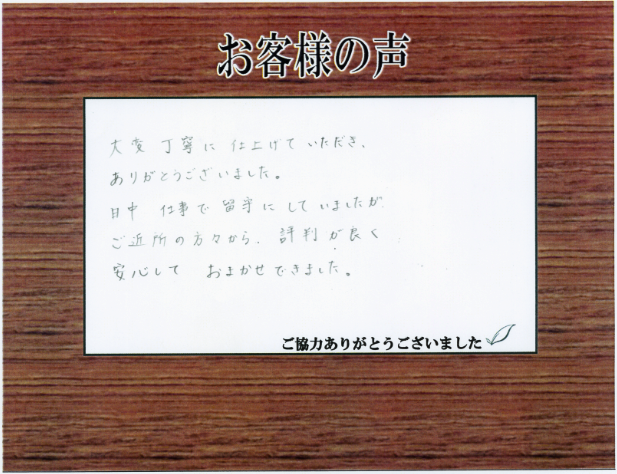 お客様の声
大変 丁寧に 仕上げて いただき、
ありがとうございました。
日中 仕事で 留守に して いましたが
ご近所の方々から、評判が良く
安心して おまかせできました。
ご協力ありがとうございました